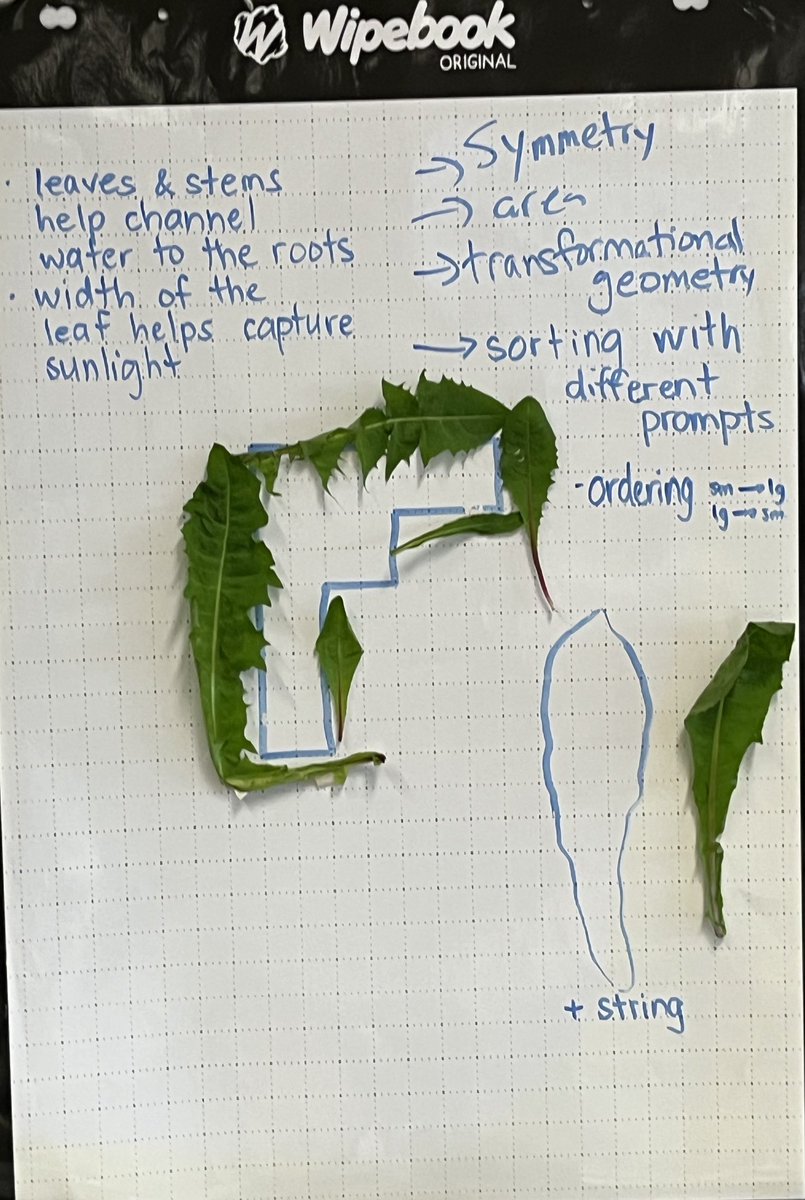 Wipebook
ORIGINAL
• leaves & stems
help channel
water to the roots
• width of the
leaf helps capture
sunlight
→ Symmetry
→ area
→ transformational
geometry
→ sorting with
different
prompts
- ordering sm → lg
lg → sm
+ string